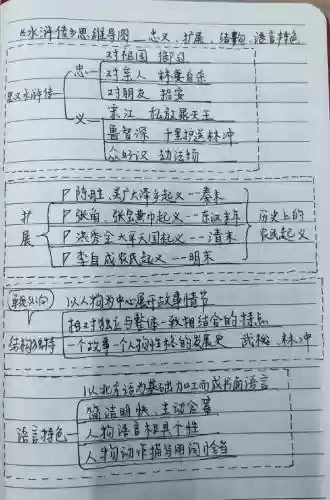 《水浒传》思维导图——忠义、扩展、结构、语言特色
对祖国 御习
忠 对亲人 林妻自杀
对朋友 招安
忠义水浒传
义 宋江 私放晁天王
鲁智深 千里护送林冲
众好汉 劫法场
陈胜、吴广大泽乡起义--秦末
扩展 张角、张宝黄巾起义--东汉末年 历史上的
洪秀全太平天国起义--清末 农民起义
李自成农民起义--明末
以人物为中心展开故事情节
相对独立与整体一致相结合的特点
结构独特 一个故事一个人物性格的发展史 武松 林冲
以北方话为基础加工而成书面语言
简洁明快、生动
语言特色 人物语言极具个性
人物动作描写用词恰当